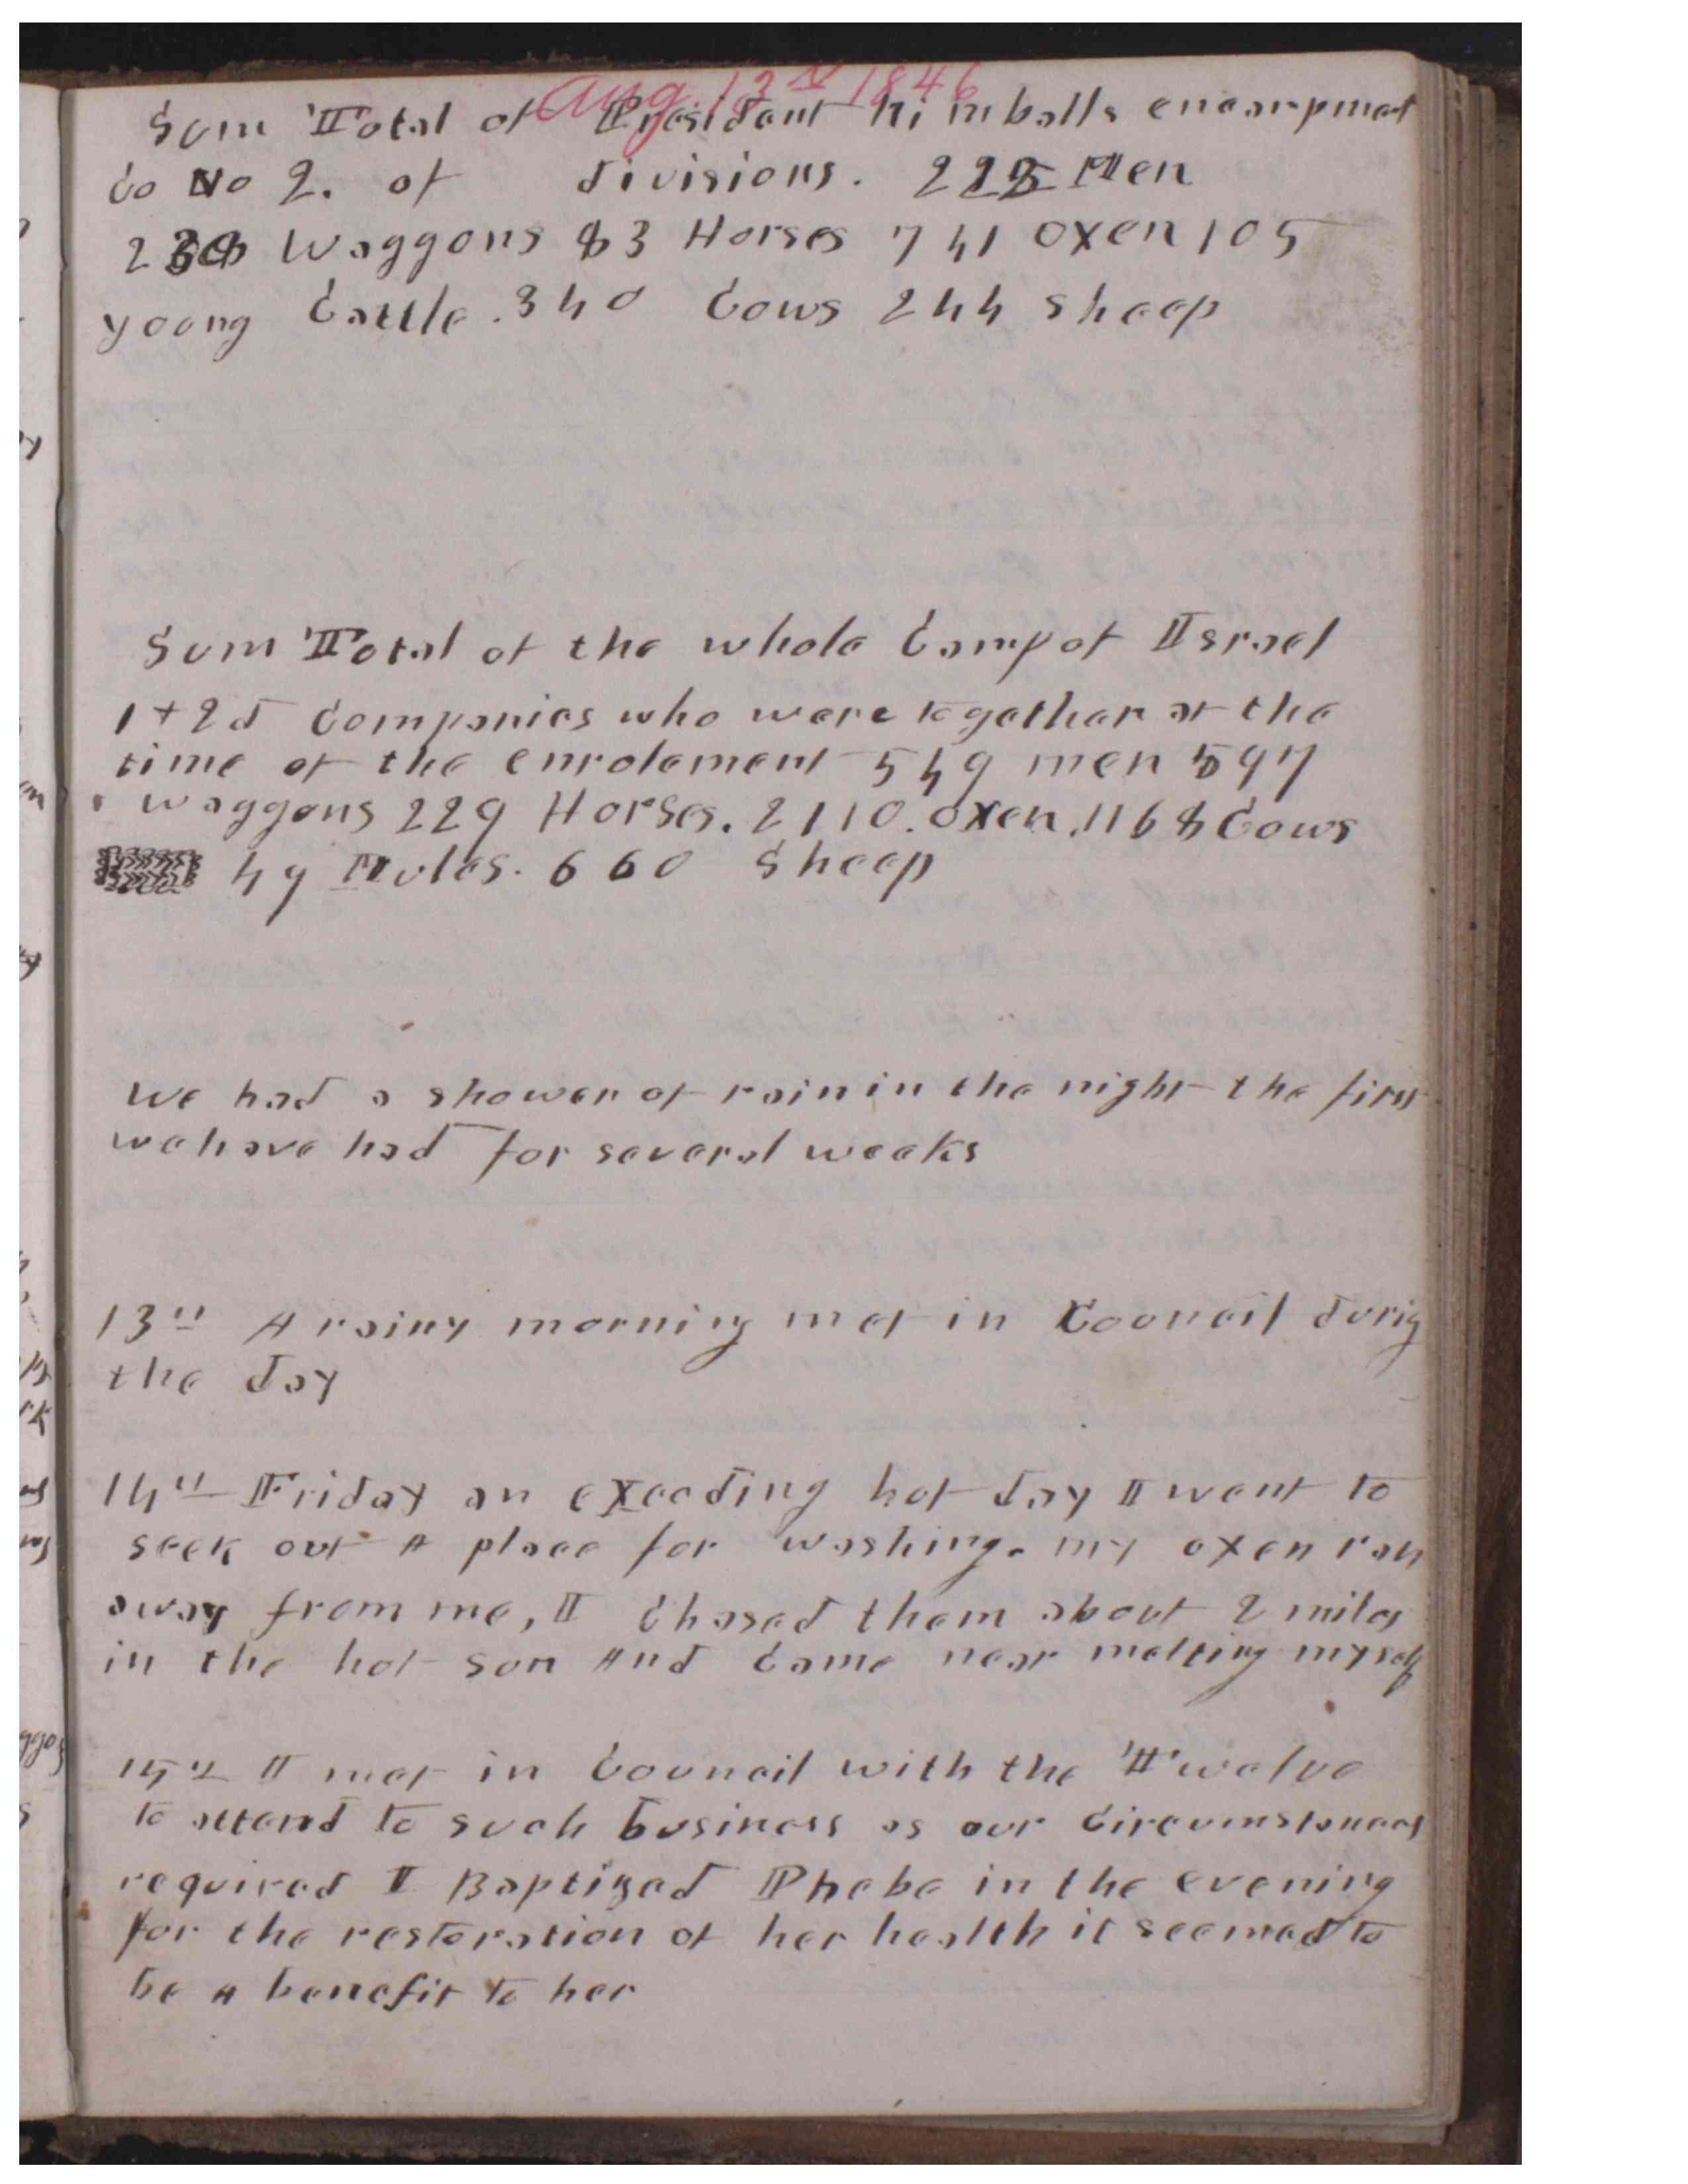 Aug. 13th 1846
Sum Total of President Kimballs encampmet
Co No 2. of divisions. 225 Men
Waggons 83 Horses 741 oxen 105
young Cattle. 340 Cows 244 Sheep
Sum Total of the whole Camp of Israel
1 + 2d Companies who were together at the
time of the enrolement 549 men 597
waggons 229 Horses. 2110. oxen. 1168 Cows
49 Mules. 660 Sheep
We had a shower of rain in the night the first
we have had for several weeks
13th A rainy morning met in Council durig
the day
14th Friday an exceding hot day I went to
seek out A place for washing. my oxen ran
away from me, I Chased them about 2 miles
in the hot sun And Came near melting myself
15th I met in Council with the Twelve
to attend to such business as our Circumstances
required I Baptized Phebe in the evening
for the restoration of her health it seemed to
be A benefit to her